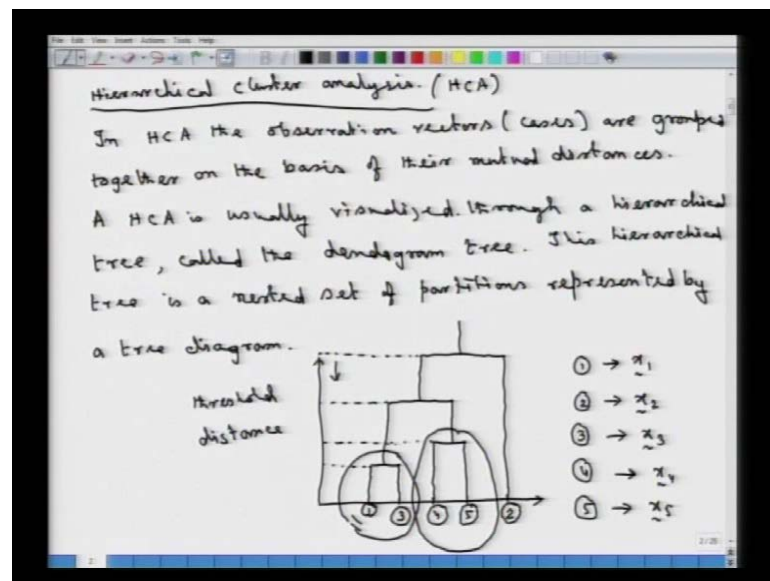 File Edit View Insert Actions Tools Help
Hierarchical cluster analysis. (HCA)
In HCA the observation vectors (cases) are grouped
together on the basis of their mutual distances.
A HCA is usually visualized through a hierarchical
tree, called the dendogram tree. This hierarchical
tree is a nested set of partitions represented by
a tree diagram.
threshold
distance
1 → x1
2 → x2
3 → x3
4 → x4
5 → x5
1 3 4 5 2
2/25
2